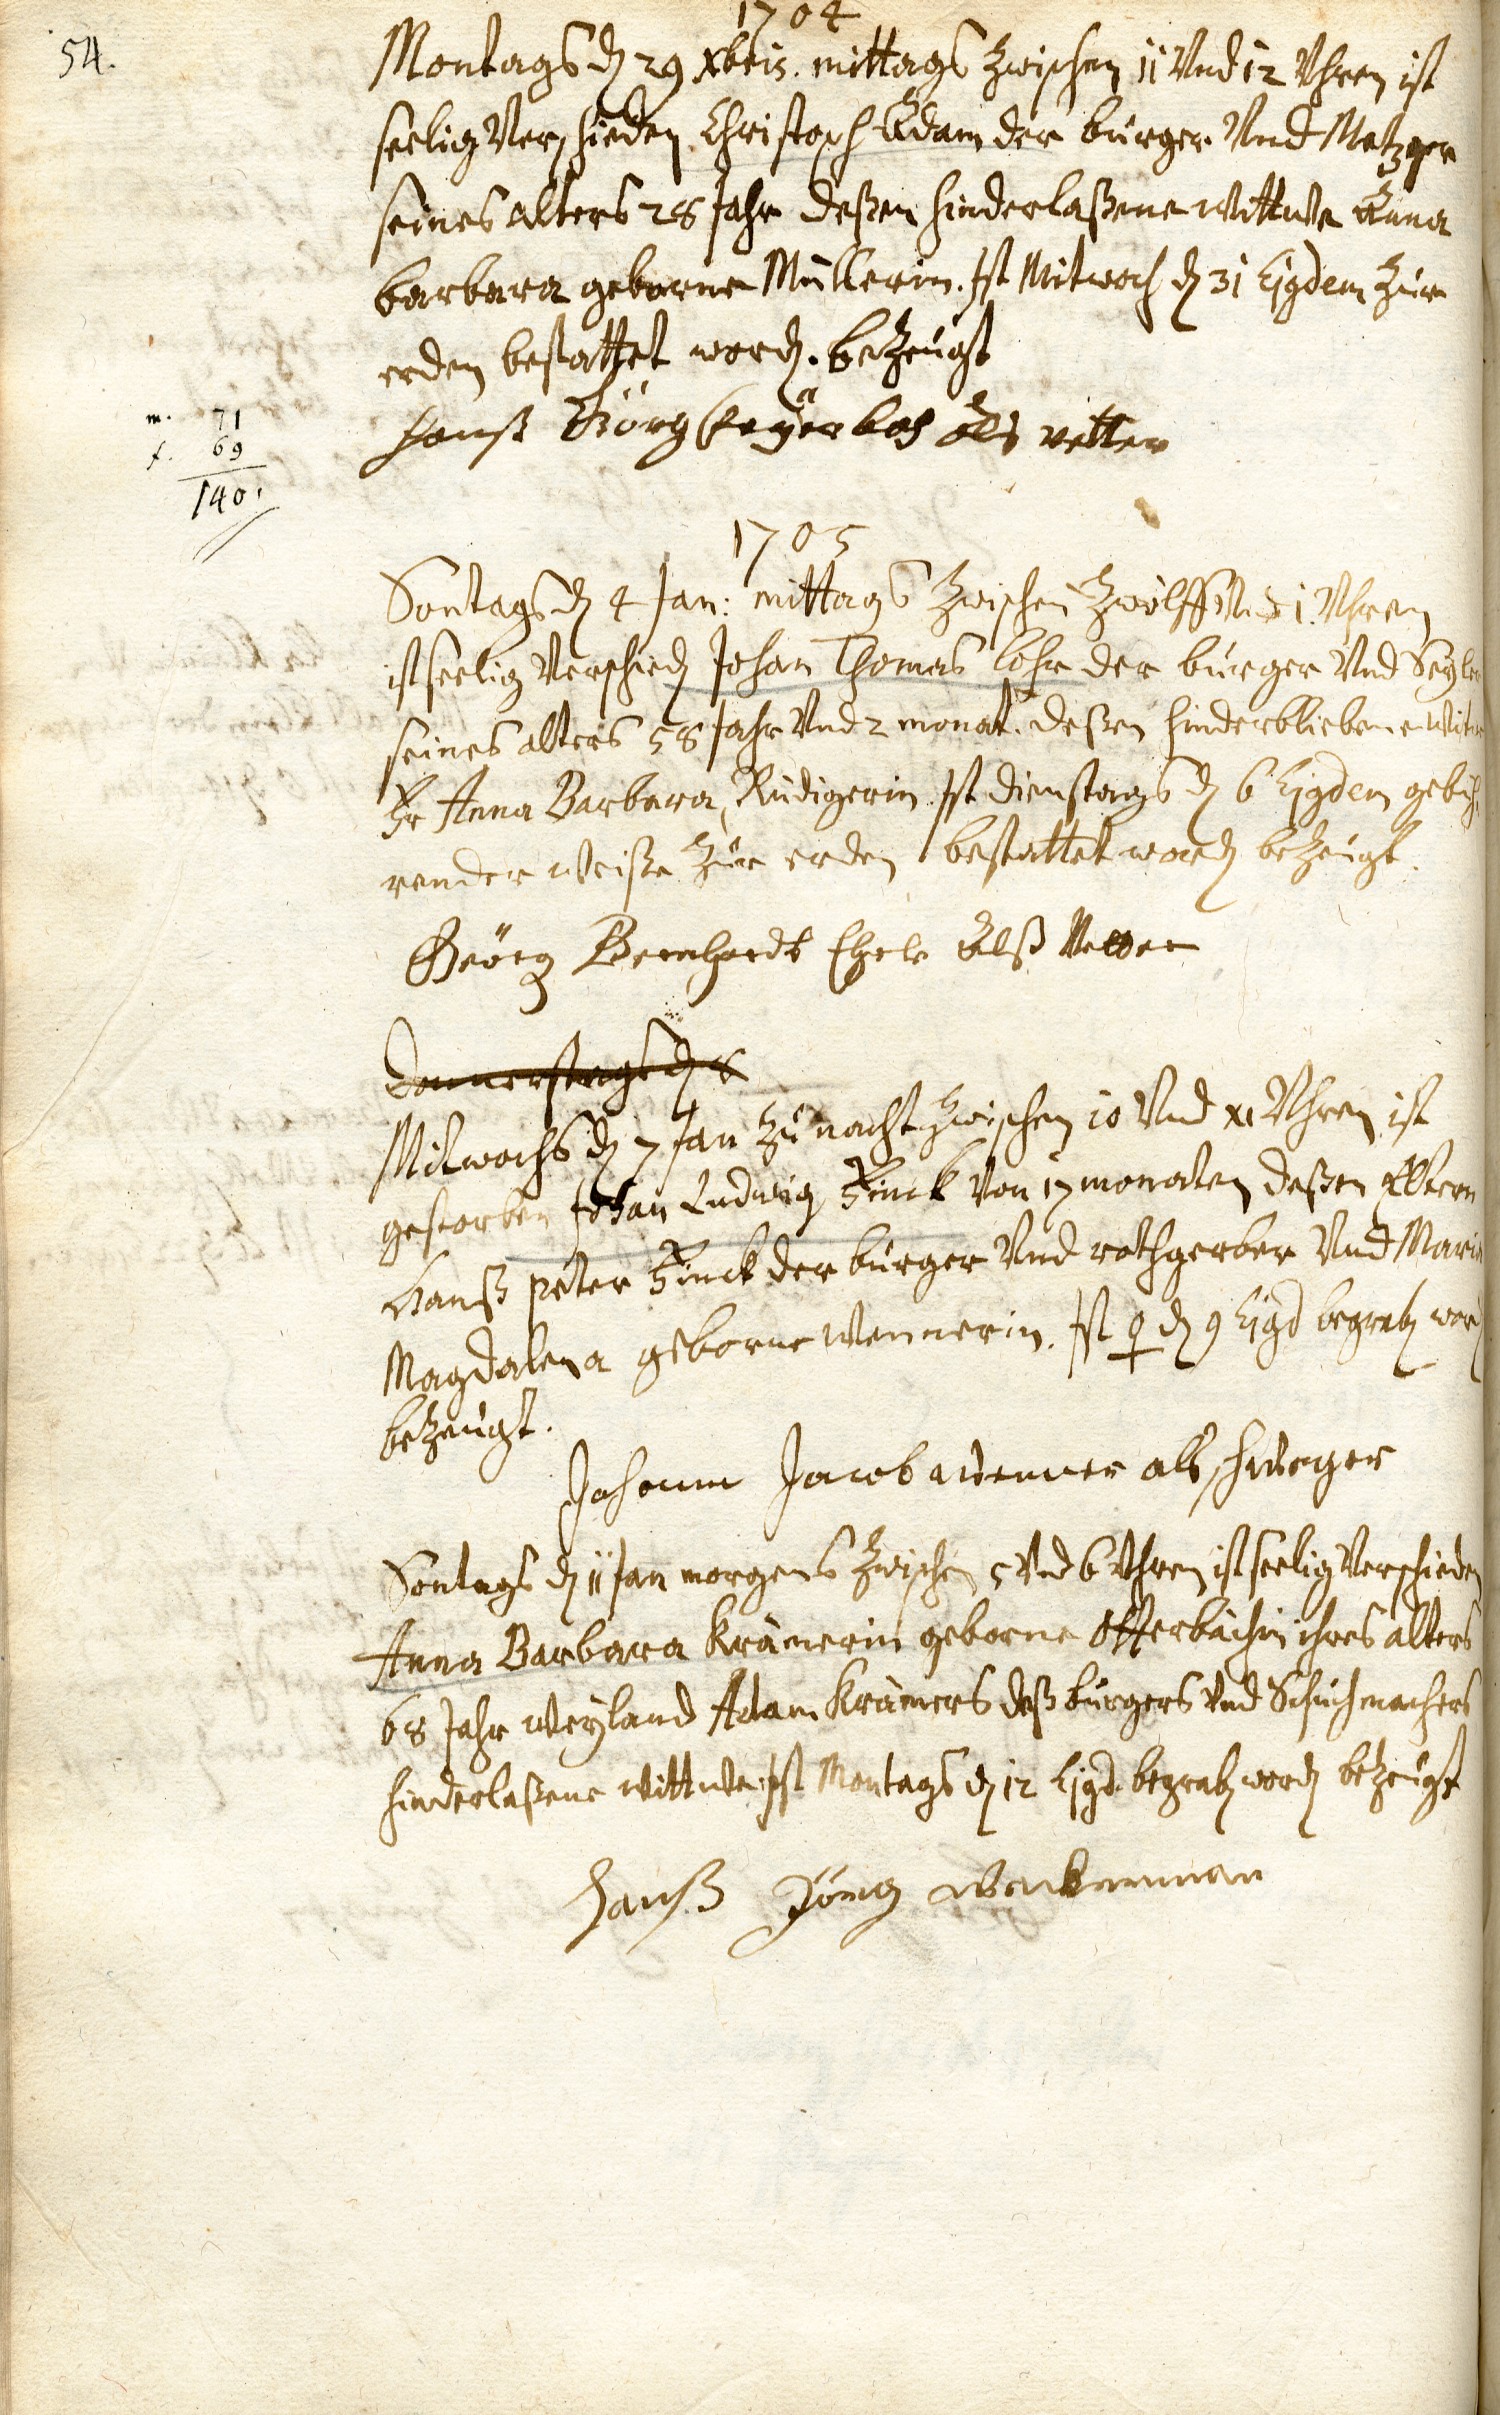 54.
1704
Montags dẽ 29 Xbris. mittags zwischen 11 Vnd 12 Vhren ist
seelig Verschieden Christoph Adam der burger Vnd Metzger
seines alters 28 Jahr deßen hinderlaßene Wittwe Anna
barbara geborne Müllerin. Ist Mitwoch dẽ 31 Ejgdem zur
erden bestattet wordẽ. bezeugt
hanß Görg als vetter
m. 71
f. 69
140.
1705
Sontags dẽ 4 Jan: mittags zwischen zwölff Vnd 1. Vhren
ist seelig Verschiedẽ Johan Thomas Lohr der burger Vnd Seyler
seines alters 58 Jahr Vnd 2 monat. deßen hinderbliebene Witwe
Fr Anna Barbara, Rudigerin. Ist dienstags dẽ 6 Ejgdem gebüh
render Weiße zur erden bestattet wordẽ bezeugt.
Geörg Bernhardt alß Vetter
Donnerstags dẽ 8
Mitwochs dẽ 7 Jan zu nacht zwischen 10 Vnd XI Vhren ist
gestorben Johan Ludwig Finck Von 17 monaten deßen Eltern
Hanß peter Finck der burger Vnd rothgerber Vnd Maria
Magdalena geborne Wennerin. Ist ♀ dẽ 9 Ejgd begrabẽ wordẽ
bezeugt.
Johann Jacob Wenner als schwager
Sontags dẽ 11 Jan morgens zwischen 5 Vnd 6 Vhren ist seelig Verschieden
Anna Barbara Krämerin geborne Otterbächin ihres alters
68 Jahr Weyland Adam Krämers deß burgers Vnd Schuhmachers
hinderlaßene Wittwe. Ist Montags dẽ 12 Ejgd. begrabẽ wordẽ bezeugt
Hanß Jörg